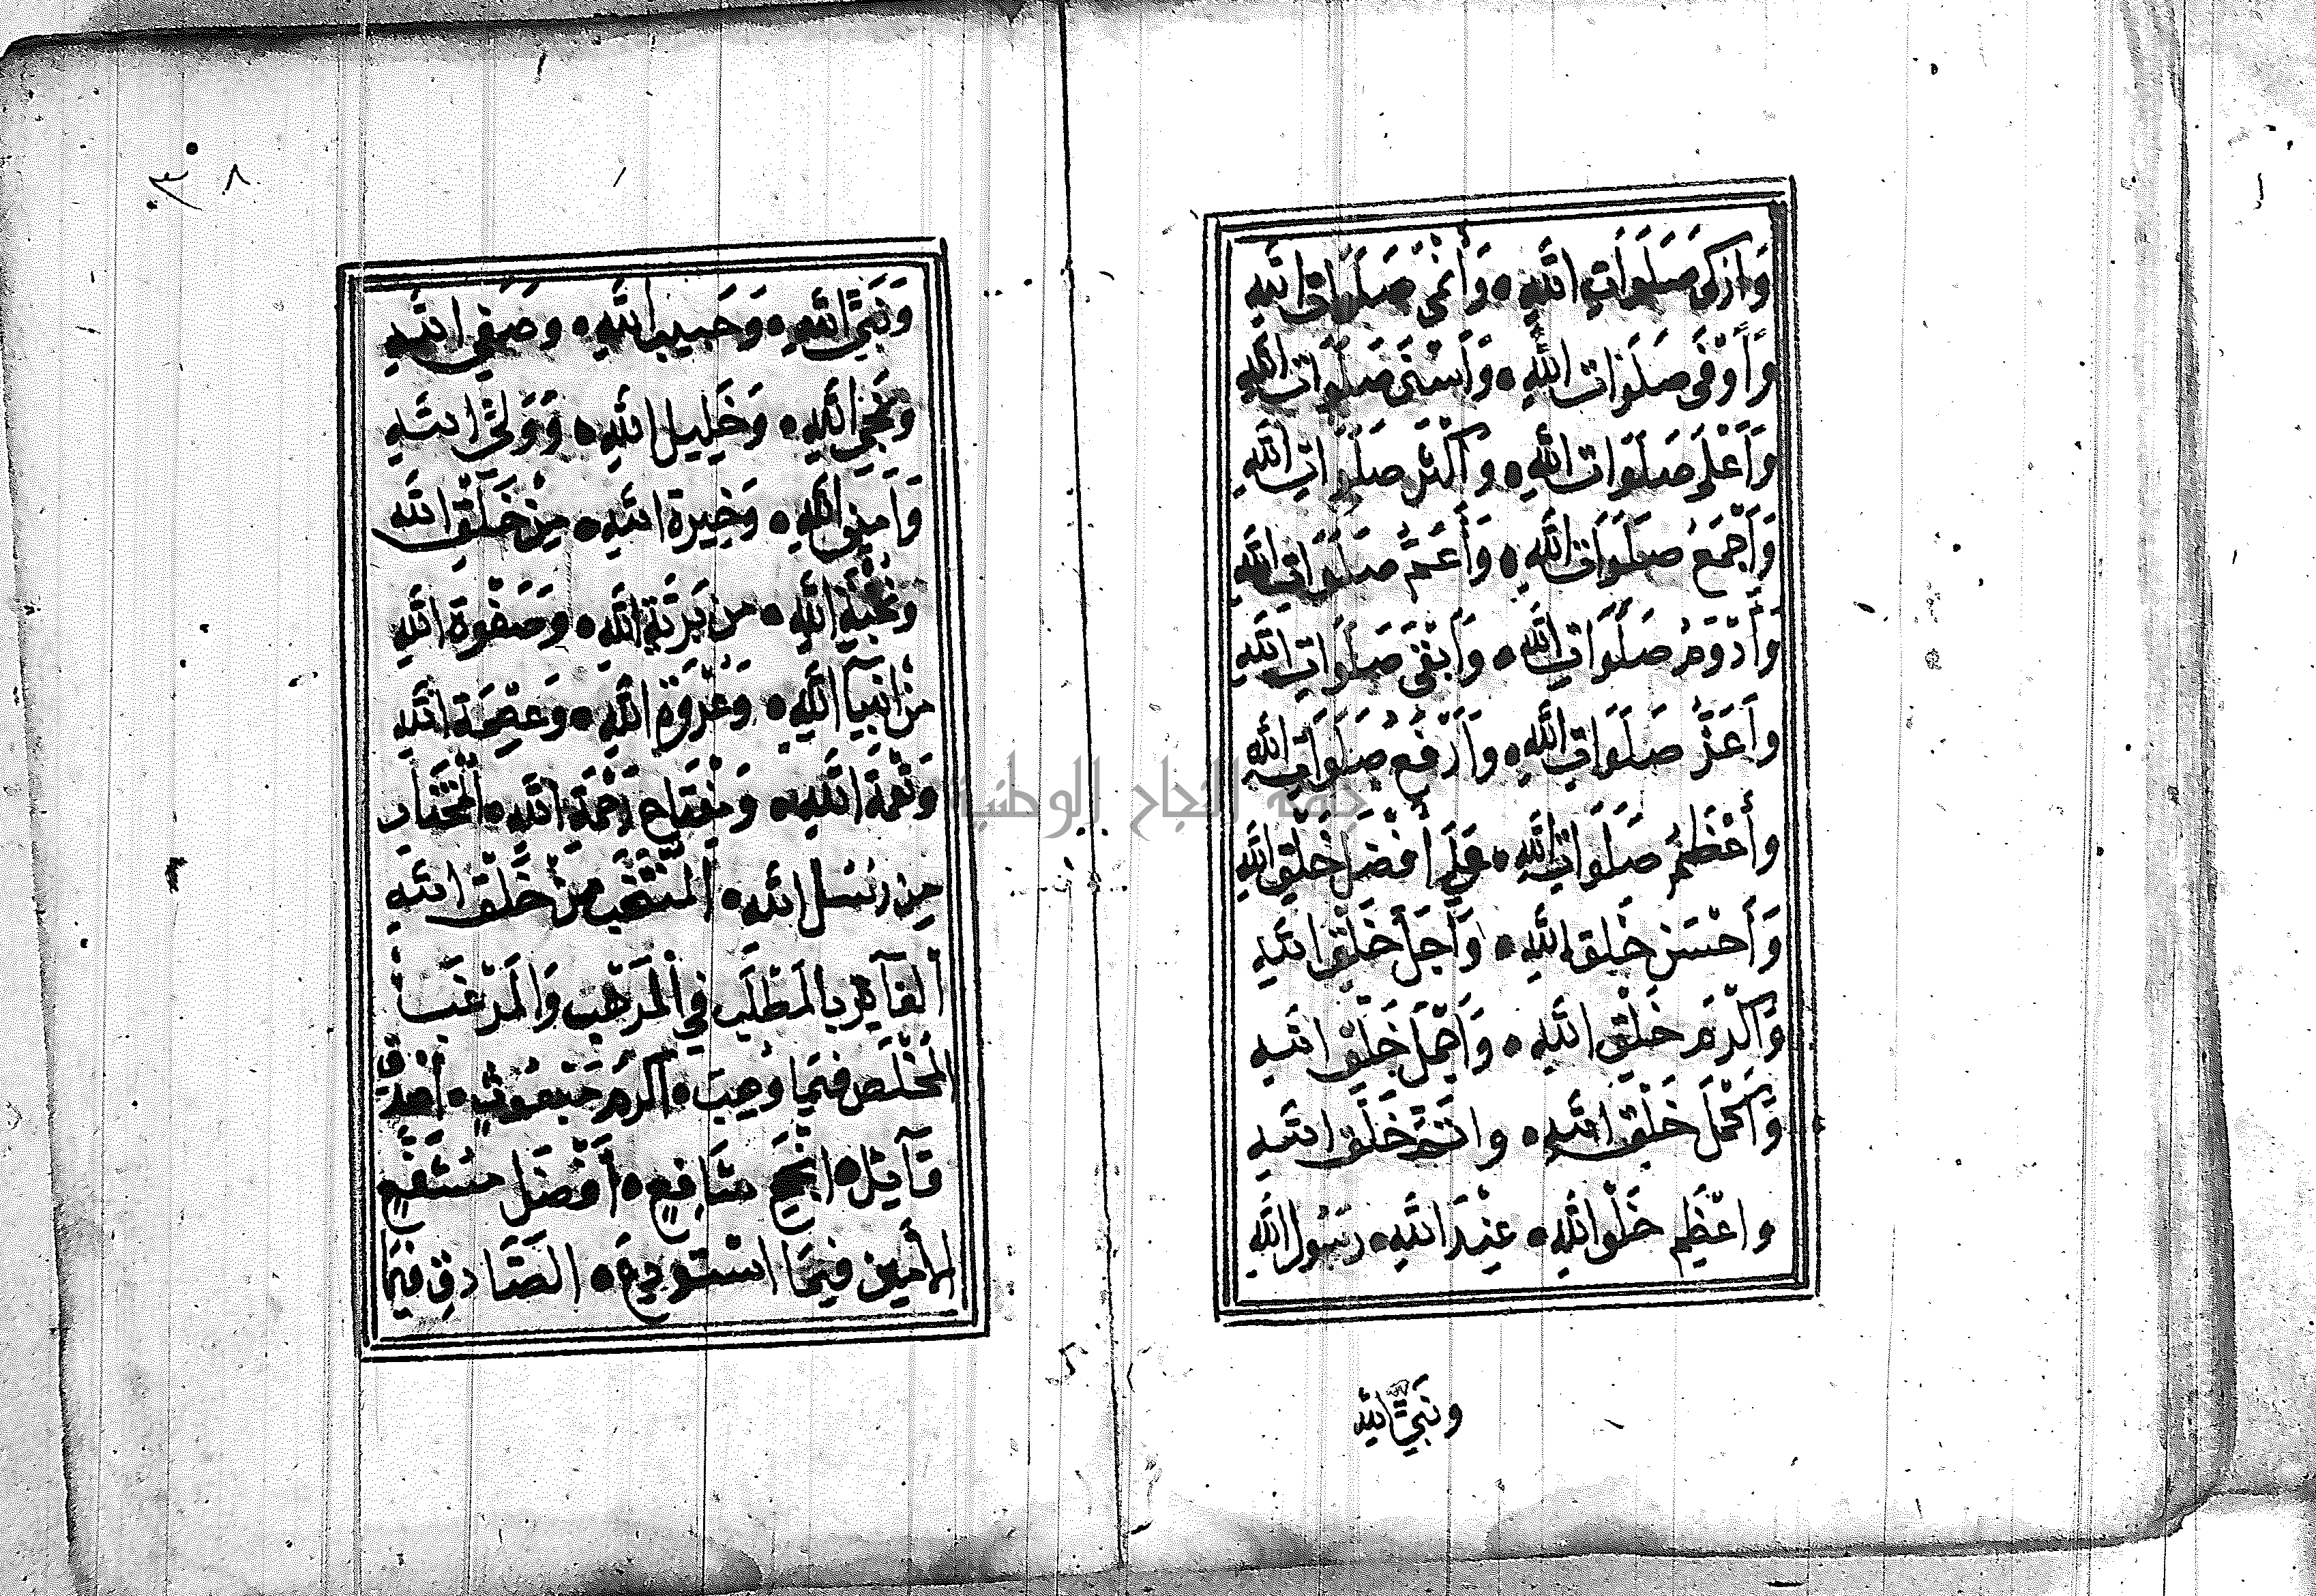 وَأَزْكَى صَلَوَاتِ اللهِ ۞ وَأَنْمَى صَلَوَاتِ اللهِ
وَأَوْفَى صَلَوَاتِ اللهِ ۞ وَأَسْنَى صَلَوَاتِ اللهِ
وَأَعْلَى صَلَوَاتِ اللهِ ۞ وَأَكْثَرُ صَلَوَاتِ اللهِ
وَأَجْمَعُ صَلَوَاتِ اللهِ ۞ وَأَعَمُّ صَلَوَاتِ اللهِ
وَأَدْوَمُ صَلَوَاتِ اللهِ ۞ وَأَبْقَى صَلَوَاتِ اللهِ
وَأَعَزُّ صَلَوَاتِ اللهِ ۞ وَأَرْفَعُ صَلَوَاتِ اللهِ
وَأَعْظَمُ صَلَوَاتِ اللهِ ۞ عَلَى أَفْضَلِ خَلْقِ اللهِ
وَأَحْسَنِ خَلْقِ اللهِ ۞ وَأَجَلِّ خَلْقِ اللهِ
وَأَكْرَمِ خَلْقِ اللهِ ۞ وَأَجْمَلِ خَلْقِ اللهِ
وَأَكْمَلِ خَلْقِ اللهِ ۞ وَأَتَمِّ خَلْقِ اللهِ
وَأَعْظَمِ خَلْقِ اللهِ ۞ عِنْدَ اللهِ ۞ رَسُولِ اللهِ
وَنَبِيِّ اللهِ
٣٨
وَنَبِيِّ اللهِ ۞ وَحَبِيبِ اللهِ ۞ وَصَفِيِّ اللهِ
وَنَجِيِّ اللهِ ۞ وَخَلِيلِ اللهِ ۞ وَوَلِيِّ اللهِ
وَأَمِينِ اللهِ ۞ وَخِيرَةِ اللهِ ۞ مِنْ خَلْقِ اللهِ
وَنُخْبَةِ اللهِ ۞ مِنْ بَرِيَّةِ اللهِ ۞ وَصَفْوَةِ اللهِ
مِنْ أَنْبِيَآءِ اللهِ ۞ وَعُرْوَةِ اللهِ ۞ وَعِصْمَةِ اللهِ
وَنِعْمَةِ اللهِ ۞ وَمِفْتَاحِ رَحْمَةِ اللهِ ۞ الْمُخْتَارِ
مِنْ رُسُلِ اللهِ ۞ الْمُنْتَخَبِ مِنْ خَلْقِ اللهِ
الْفَآئِزِ بِالْمَطْلَبِ فِي الْمَرْهَبِ وَالْمَرْغَبِ
الْمُخْلَصِ فِيمَا وُهِبَ ۞ أَكْرَمِ مَبْعُوثٍ ۞ أَصْدَقِ
قَآئِلٍ ۞ أَنْجَحِ شَافِعٍ ۞ أَفْضَلِ مُشَفَّعٍ
الْأَمِينِ فِيمَا اسْتُودِعَ ۞ الصَّادِقِ فِيمَا
جامعة النجاح الوطنية